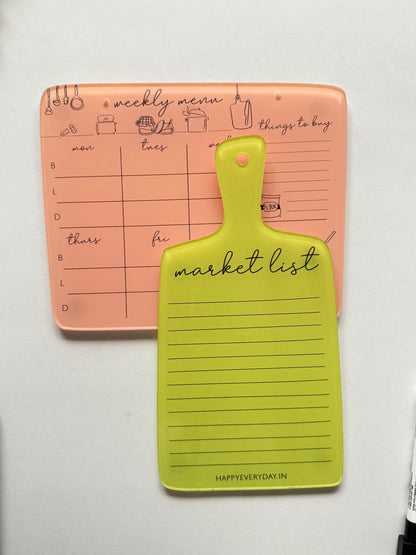 weekly menu
things to buy
mon
tues
B
L
D
thurs
fri
B
L
D
FLOUR
market list
HAPPYEVERYDAY.IN